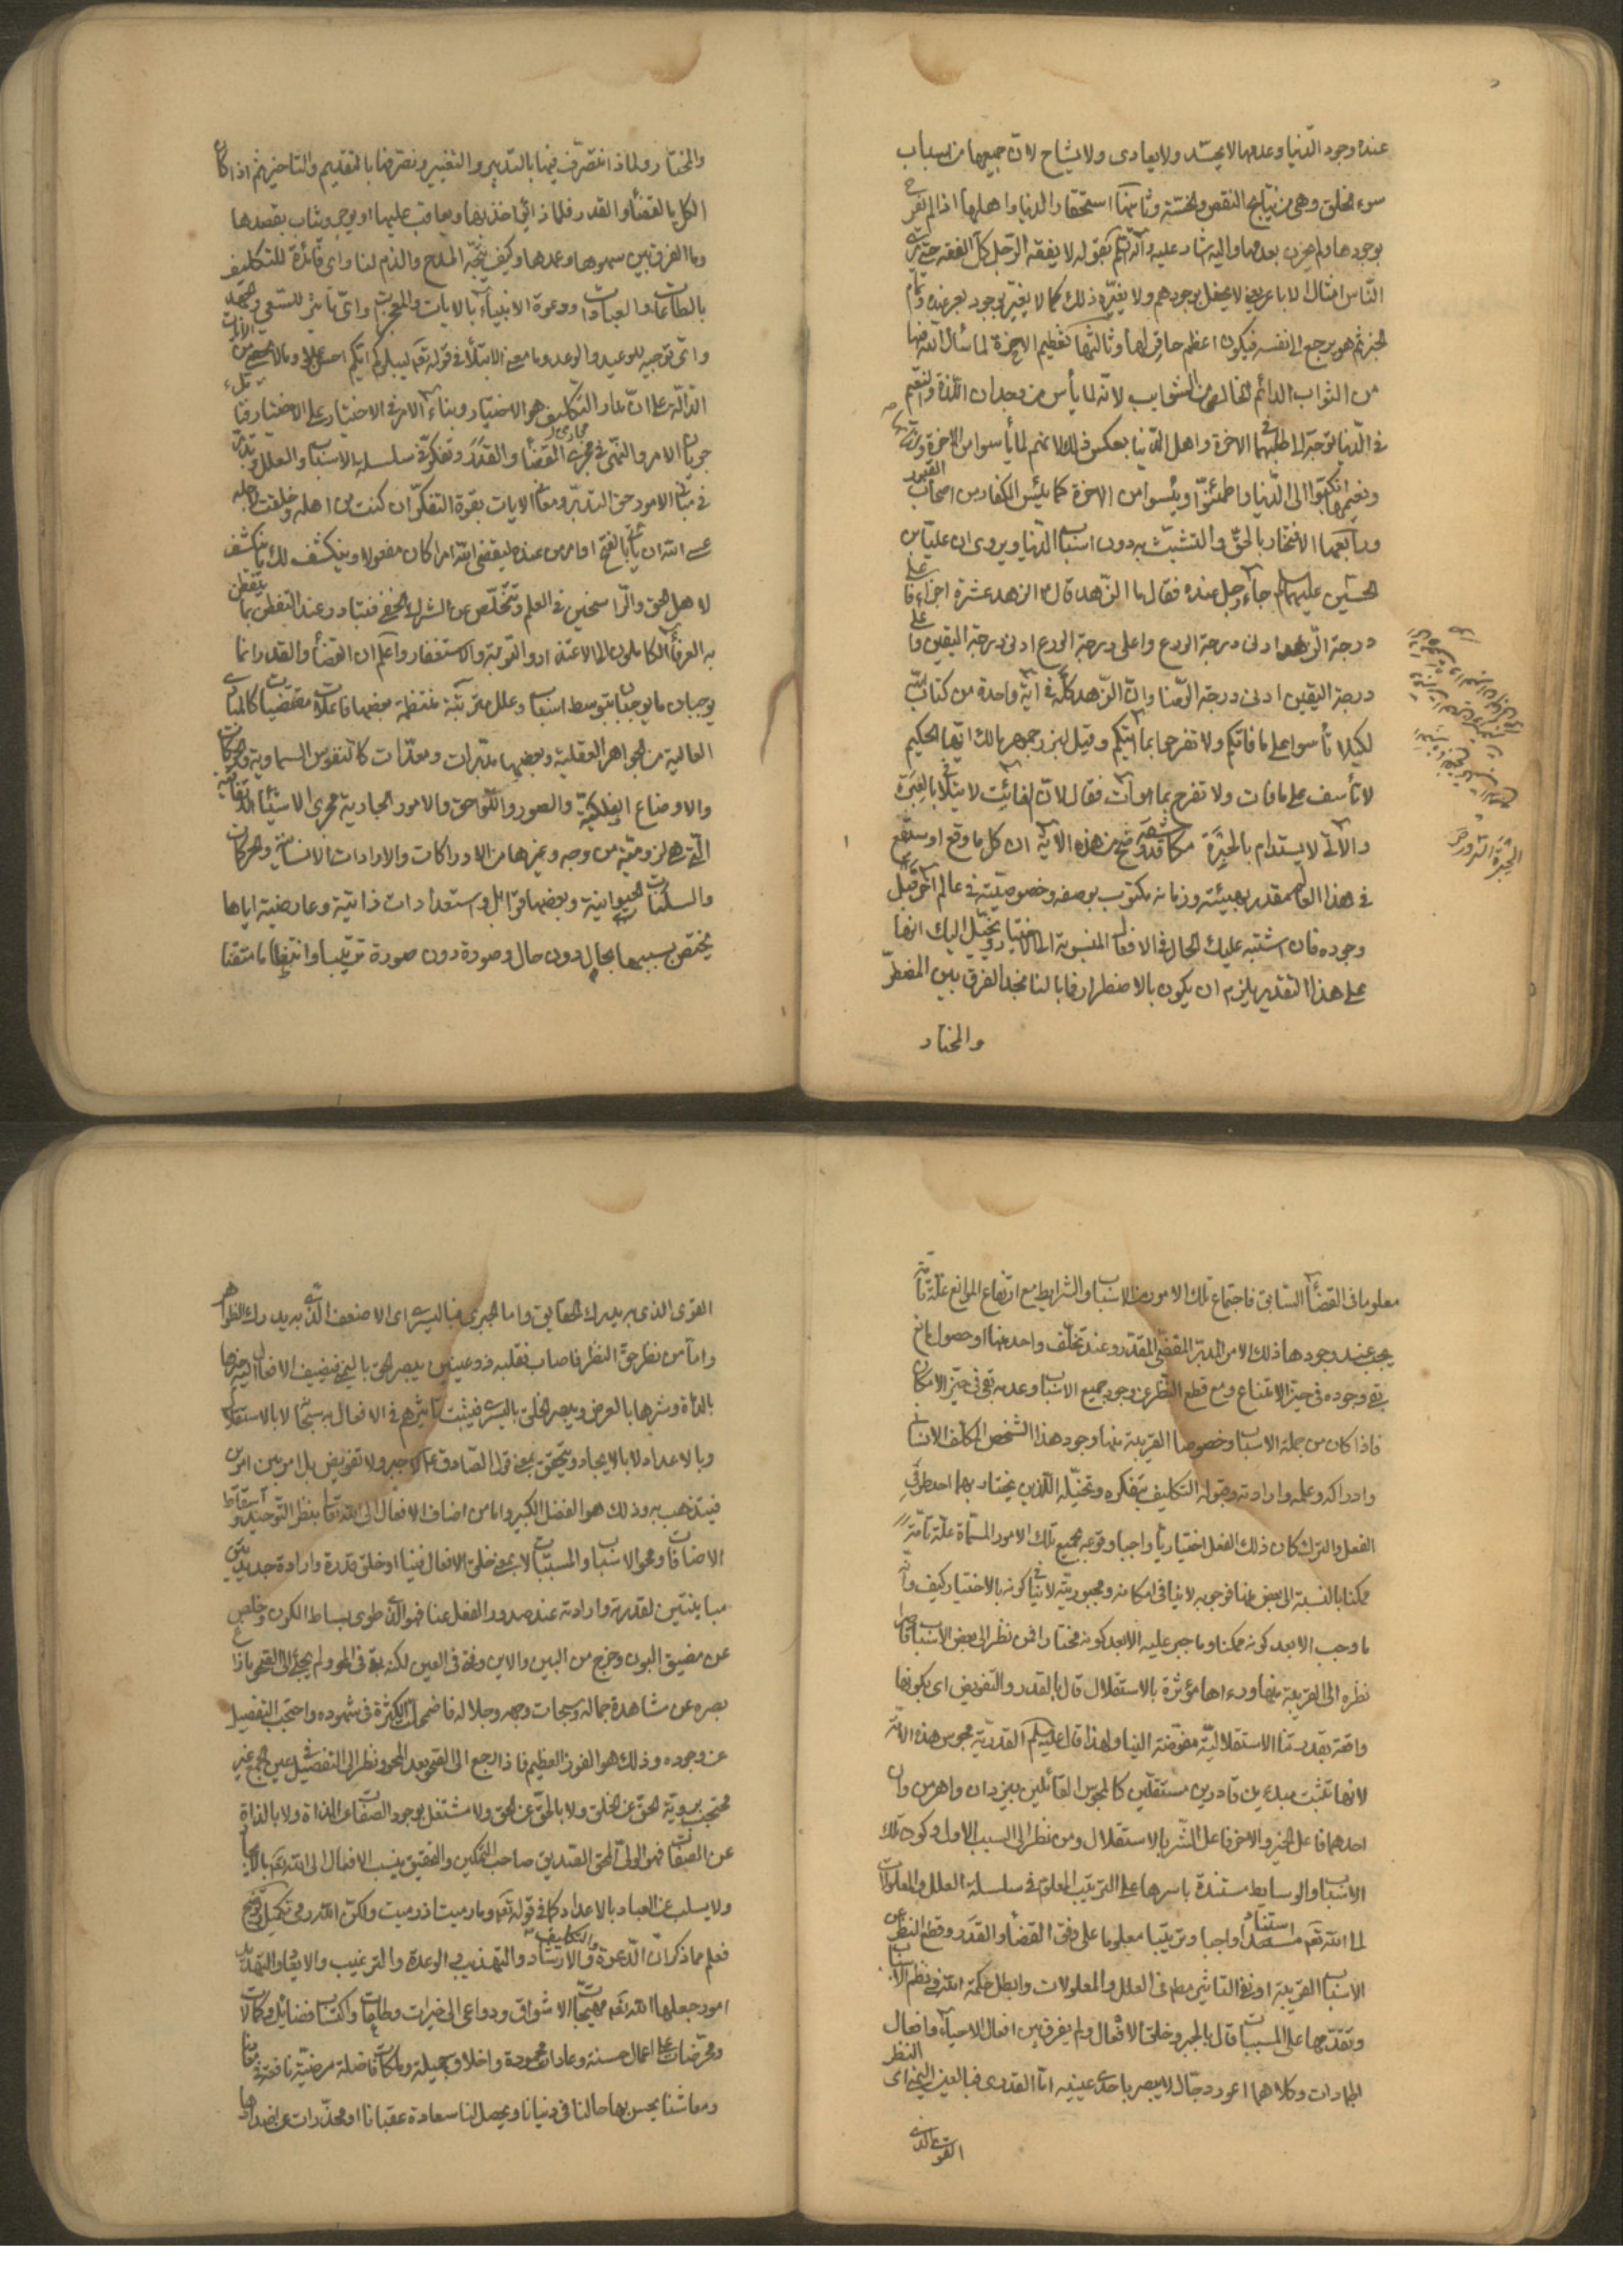 عنده وجود الدّنيا وعدمها لا يحسد ولا يعادى ولا يشاح لانّ جميعها من اسباب
سوء الخلق وهى من نتايج النقص والخسّة وثانيتها استحقار الدنيا واهلها اذا لم يفرح
بوجودها ولم يحزن بعدمها واليه اشار عليه وآله السّلم بقوله لا يفقه الرّجل كلّ الفقه حتّى يرى
النّاس امثال الاباعر يعنى لا يحفل بوجودهم ولا يغيّره ذلك كما لا يغيّر بوجود بعير عنده وتمام
الخبر ثم هو يرجع الى نفسه فيكون اعظم حاقر لها وثالثتها تعظيم الاخرة لما سأل الله فيها
من الثواب الدائم الخالص من الشوايب لانّه لما يأس من وجدان اللذة والنعيم
فى الدّنيا توجه الى طلبهما فى الاخرة واهل الدّنيا بعكس ذلك لانهم لما يأسوا من الاخرة
ونعيمها انكبّوا الى الدّنيا واطمئنّوا ويئسوا من الاخرة كما يئس الكفار من اصحاب القبور
ورابعتها الافتخار بالحقّ والتشبث به دون اسباب الدّنيا ويروى ان علىّ بن
الحسين عليهما السلام جاء رجل عنده فقال ما الزّهد قال الزهد عشرة اجزاء فاعلى
درجة الزّهد ادنى درجة الورع واعلى درجة الورع ادنى درجة اليقين واعلى
درجة اليقين ادنى درجة الرّضا وانّ الزّهد كلّه فى اية واحدة من كتاب الله
لكيلا تأسوا على ما فاتكم ولا تفرحوا بما اتيكم وقيل لبزرجمهر مالك ايّها الحكيم
لا تأسف على ما فات ولا تفرح بما هو آت فقال لانّ الفائت لا يتلافى بالعبرة
والآتى لا يستدام بالحبرة مكاشفة قد وضح من هذه الآية ان كل ما وقع او سيقع
فى هذا العالم مقدر بهيئته وزمانه مكتوب بوصفه وخصوصيّته فى عالم آخر قبل
وجوده فان اشتبه عليك الحال فى الافعال المنسوبة الى الاختيار ويخيّل اليك انها
على هذا التقدير يلزم ان يكون بالاضطرار فما بالنا نجد الفرق بين المضطرّ
والمختار
الحبرة السّرور
والمختار ولماذا نتصرّف فيها بالتدبير والتغيير ونصرفها بالتقديم والتاخير ثم اذا كان
الكل بالقضاء والقدر فلماذا يؤاخذ بها ويعاقب عليها او يوجر ويثاب بقصدها
وما الفرق بين سهوها وعمدها وكيف يتجّه المدح والذم لنا واى فائدة للتكليف
بالطاعات والعبادات ودعوة الانبياء بالايات والمعجزات واىّ تاثير للسّعى والجهد
واىّ توجيه للوعيد والوعد وما معنى الابتلاء فى قوله تعم ليبلوكم ايّكم احسن عملا وما لا يحصى من الايات
الدّالة على انّ مدار التكليف هو الاختيار وبناء الامر فى الاختبار على الاختيار فتأمل
جريان الامر والنّهى فى مجرى القضاء والقدر وتفكر فى سلسلة الاسباب والعلل وتدبّر
فى مبانى الامور حق التدبّر ومعانى الايات بقوة التفكّر ان كنت من اهله وخلقت لاجله
عسى الله ان يأتى بالفتح او امر من عنده ليقضى الله امرا كان مفعولا وينكشف لك ما ينكشف
لاهل الحق والرّاسخين فى العلم وتتخلّص عن الشرك الخفى فتبادر عند التفطن بما يتفطن
به العرفاء الكاملون الى الاعتذار والتوبة والاستغفار واعلم ان القضاء والقدر انما
يوجبان ما يوجبان بتوسط اسباب وعلل مترتبة منتظمة بعضها فاعلات مقتضيات كالمبادى
العالية من الجواهر العقلية وبعضها مدبّرات ومعدّات كالنفوس السماوية والحركات
والاوضاع الفلكية والصور واللّواحق والامور الجارية مجرى الاشياء الاتّفاقية
الّتى هى لزوميّة من وجه وغيرها من الادراكات والارادات الانسانية والحركات
والسكنات الحيوانية وبعضها قوابل واستعدادات ذاتية وعارضية اياها
يختص بسببها بحال دون حال وصورة دون صورة ترتيبا وانتظاما متقنا
معلوما فى القضاء السّابق فاجتماع تلك الامور من الاسباب والشرايط مع ارتفاع الموانع علّة تامّة
يجب عند وجودها ذلك الامر المدبّر المقضىّ المقدّر وعند تخلّف واحد منها او حصول مانع
بقى وجوده فى حيّز الامتناع ومع قطع النّظر عن وجود جميع الاسباب وعدمه بقى فى حيّز الامكان
فاذا كان من جملة الاسباب وخصوصا القريبة منها وجود هذا الشخص المكلّف الانسانى
وادراكه وعلمه وارادته وقبوله التكاليف بتفكره وتخيّله اللّذين يختار بهما احد طرفى
الفعل والترك كان ذلك الفعل اختياريّا واجبا وقوعه بجميع تلك الامور المسمّاة علّة تامّة
ممكنا بالنسبة الى بعض منها فوجوبه لا ينافى امكانه ومجبوريّته لا ينافى كونه بالاختيار كيف وانّه
ما وجب الا بعد كونه ممكنا وما جبر عليه الا بعد كونه مختارا فمن نظر الى بعض الاسباب قاصرا
نظره الى القريبة منها وراها مؤثرة بالاستقلال قال بالقدر والتفويض اى بكونها
واقعة بقدرتنا الاستقلاليّة مفوّضة الينا ولهذا قال عليه السلم القدريّة مجوس هذه الامّة
لانها تثبت مبدءين قادرين مستقلّين كالمجوس القائلين بيزدان واهرمن وان
احدهما فاعل الخير والاخر فاعل الشر بالاستقلال ومن نظر الى السبب الاول وكون تلك
الاسباب والوسايط مستندة باسرها على الترتيب المعلوم فى سلسلة العلل والمعلولات
لما الله تعم استنادا واجبا وترتيبا معلوما على وفق القضاء والقدر وقطع النظر عن
الاسباب القريبة او نفى التاثير مط فى العلل والمعلولات وابطل حكمة الله فى نظم الاسباب
وتقدّمها على المسببات قال بالجبر وخلق الافعال ولم يفرق بين افعال الاحياء وافعال
الجمادات وكلاهما اعور دجّال لا يبصر باحدى عينيه امّا القدرى فبالعين اليمنى اى النظر
القوىّ الذى
القوى الذى به يدرك الحقايق واما الجبرى فباليسرى اى الاضعف الذى به يدرك الظواهر
وامّا من نظر حقّ النظر فاصاب فقلبه ذو عينين يبصر الحق باليمنى فيضيف الافعال اليه خيرها
بالذات وشرها بالعرض ويبصر الخلق باليسرى فيثبت تأثيرهم فى الافعال به سبحانه لا بالاستقلال
وبالاعداد لا بالايجاد ويتحقق بمعنى قول الصّادق ع لا جبر ولا تفويض بل امر بين امرين
فيتذهب به وذلك هو الفضل الكبير واما من اضاف الافعال الى الله تعالى بنظر التّوحيد واسقاط
الاضافات ومحو الاسباب والمسببات لا بمعنى خلق الافعال فينا او خلق قدرة وارادة جديدتين
مباينتين لقدرته وارادته عند صدور الفعل عنا فهو الّذى طوى بساط الكون وخلص
عن مضيق البون وخرج من البين والاين وفنى فى العين لكنه بقى فى المحو ولم يجئ الى الصحو مازاغ
بصره عن مشاهدة جماله وسبحات وجهه وجلاله فاضمحلّت الكثرة فى شهوده واحتجب التفصيل
عن وجوده وذلك هو الفوز العظيم فاذا رجع الى الصحو بعد المحو ونظر الى التفصيل فى عين الجمع غير
محتجب برؤية الحقّ عن الخلق ولا بالخلق عن الحق ولا مشتغل بوجود الصفات عن الذات ولا بالذات
عن الصفات فهو الولىّ المحق الصديق صاحب التمكين والتحقيق ينسب الافعال الى الله تعم بالايجاد
ولا يسلب عن العباد بالاعداد كما فى قوله تعم وما رميت اذ رميت ولكنّ الله رمى تكميل وتوضيح
فعلم مما ذكر انّ الدّعوة والتكليف والارشاد والتهذيب والوعد والترغيب والايعاد والتهديد
امور جعلها الله تعم مهيّجات الاشواق ودواعى الى خيرات وطاعات واكتساب فضايل وكمالات
ومحرّضات على اعمال حسنة وعادات محمودة واخلاق جميلة وملكات فاضلة مرضيّة نافعة فى معادنا
ومعاشنا يحسن بها حالنا فى دنيانا ويحصل لنا سعادة عقبانا او محذّرات عن اضدادها